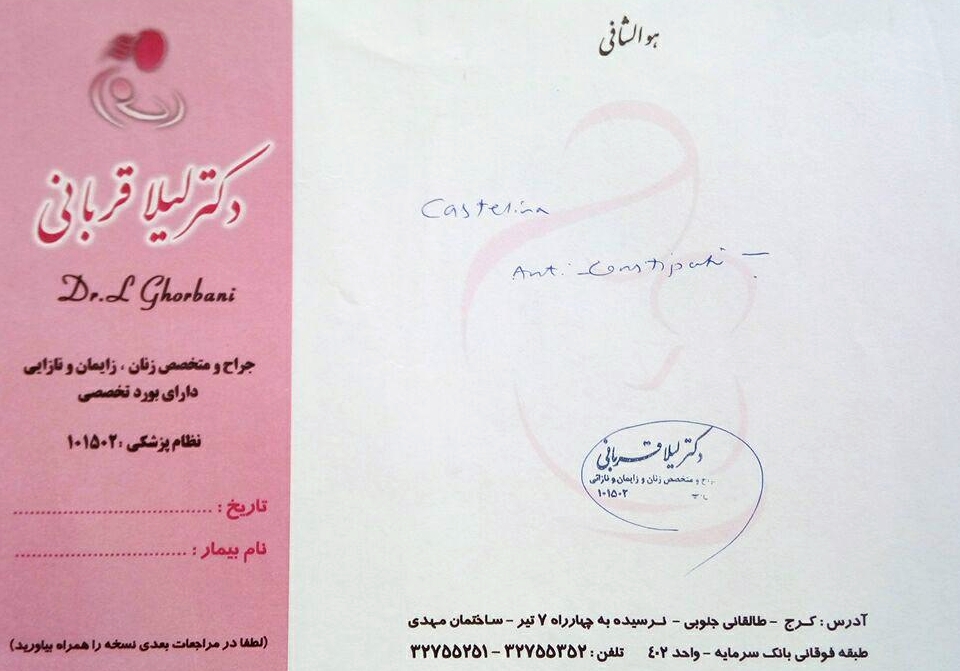 دکتر لیلا قربانی
Dr.L Ghorbani
جراح و متخصص زنان ، زایمان و نازایی
دارای بورد تخصصی
نظام پزشکی : ۱۰۱۵۰۲
تاریخ : ......................................
نام بیمار : .................................
(لطفا در مراجعات بعدی نسخه را همراه بیاورید)
هوالشافی
Castelina
Anti-Constipati
دکتر لیلا قربانی
متخصص زنان و زایمان و نازائی
۱۰۱۵۰۲
آدرس : کرج - طالقانی جنوبی - نرسیده به چهارراه ۷ تیر - ساختمان مهدی
طبقه فوقانی بانک سرمایه - واحد ۴۰۲ تلفن : ۳۲۷۵۵۳۵۲ - ۳۲۷۵۵۲۵۱